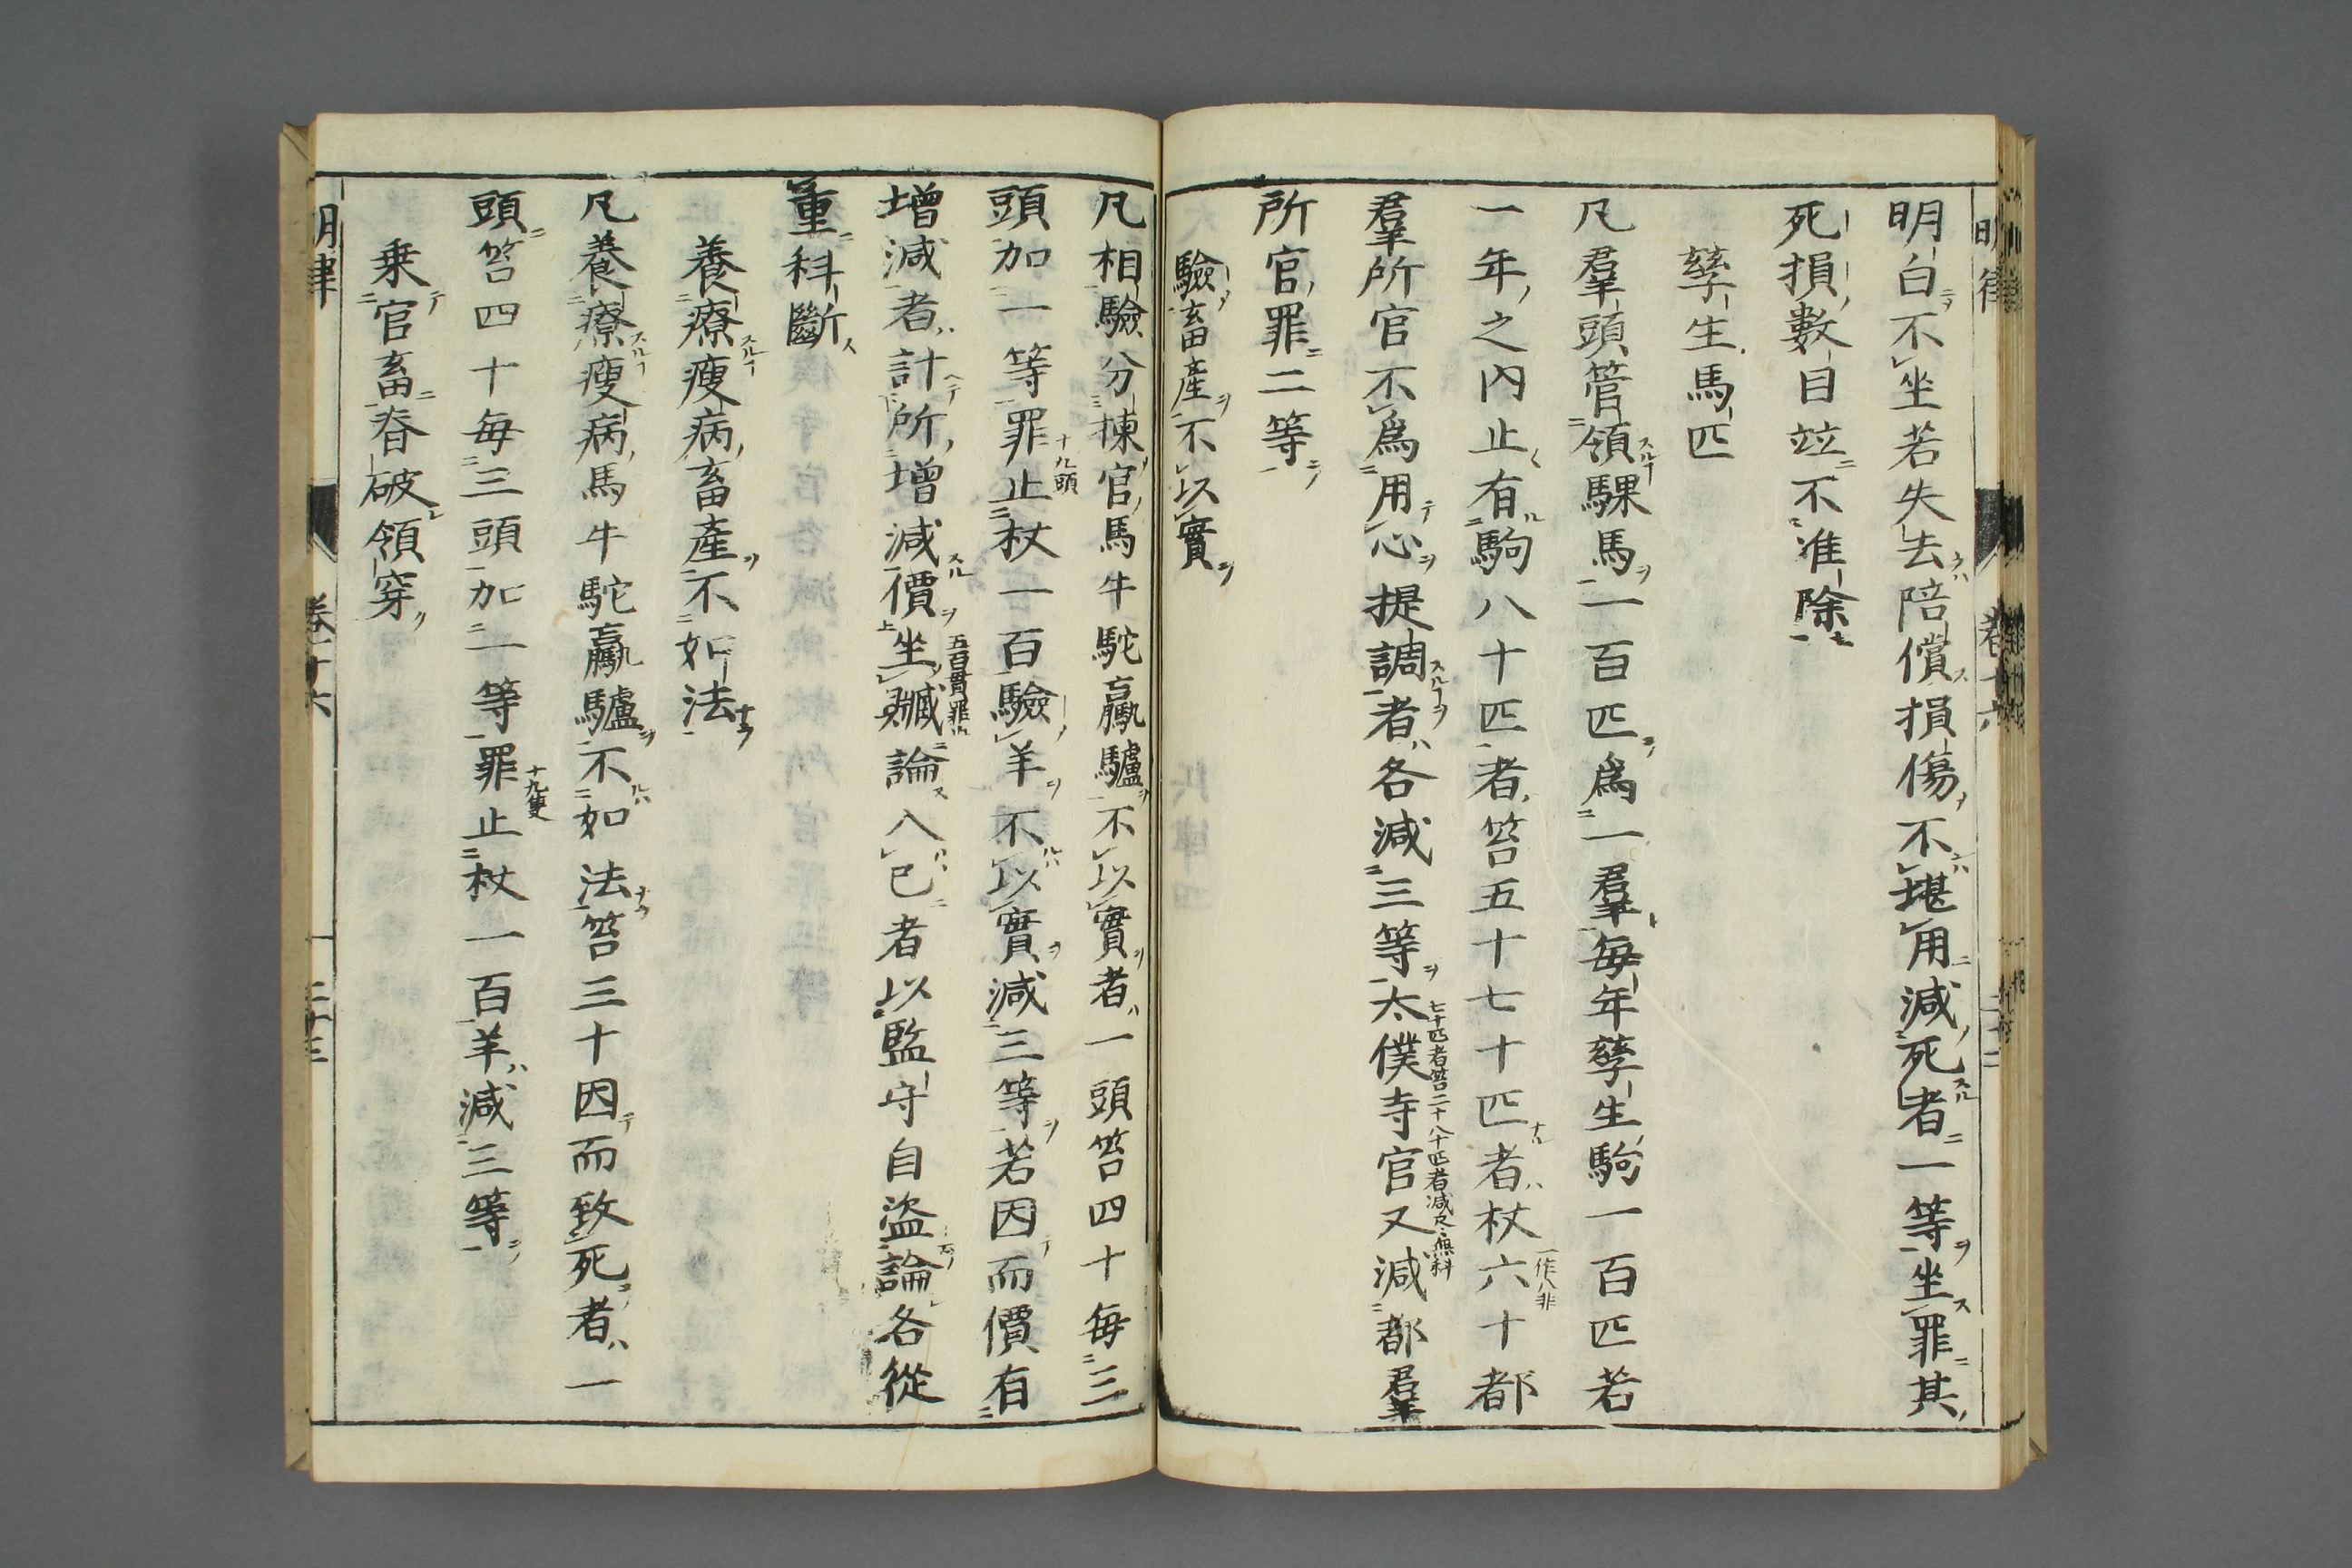 明律 卷十六 二十二
明白不坐若失去陪償損傷不堪用減死者一等坐罪其
死損數目竝不准除
孳生馬匹
凡羣頭管領騍馬一百匹爲一羣每年孳生駒一百匹若
一年之內止有駒八十匹者笞五十七十匹者杖六十都
一作八非
羣所官不爲用心提調者各減三等太僕寺官又減都羣
七十匹者笞二十八十匹者減尽無科
所官罪二等
驗畜產不以實
凡相驗分揀官馬牛駝驘驢不以實者一頭笞四十每三
頭加一等罪止杖一百驗羊不以實減三等若因而價有
十九頭
增減者計所增減價坐贓論入己者以監守自盜論各從
五百貫罪止
重科斷
養療瘦病畜產不如法
凡養療瘦病馬牛駝驘驢不如法笞三十因而致死者一
頭笞四十每三頭加一等罪止杖一百羊減三等
乗官畜脊破領穿
明律 卷十六 二十三